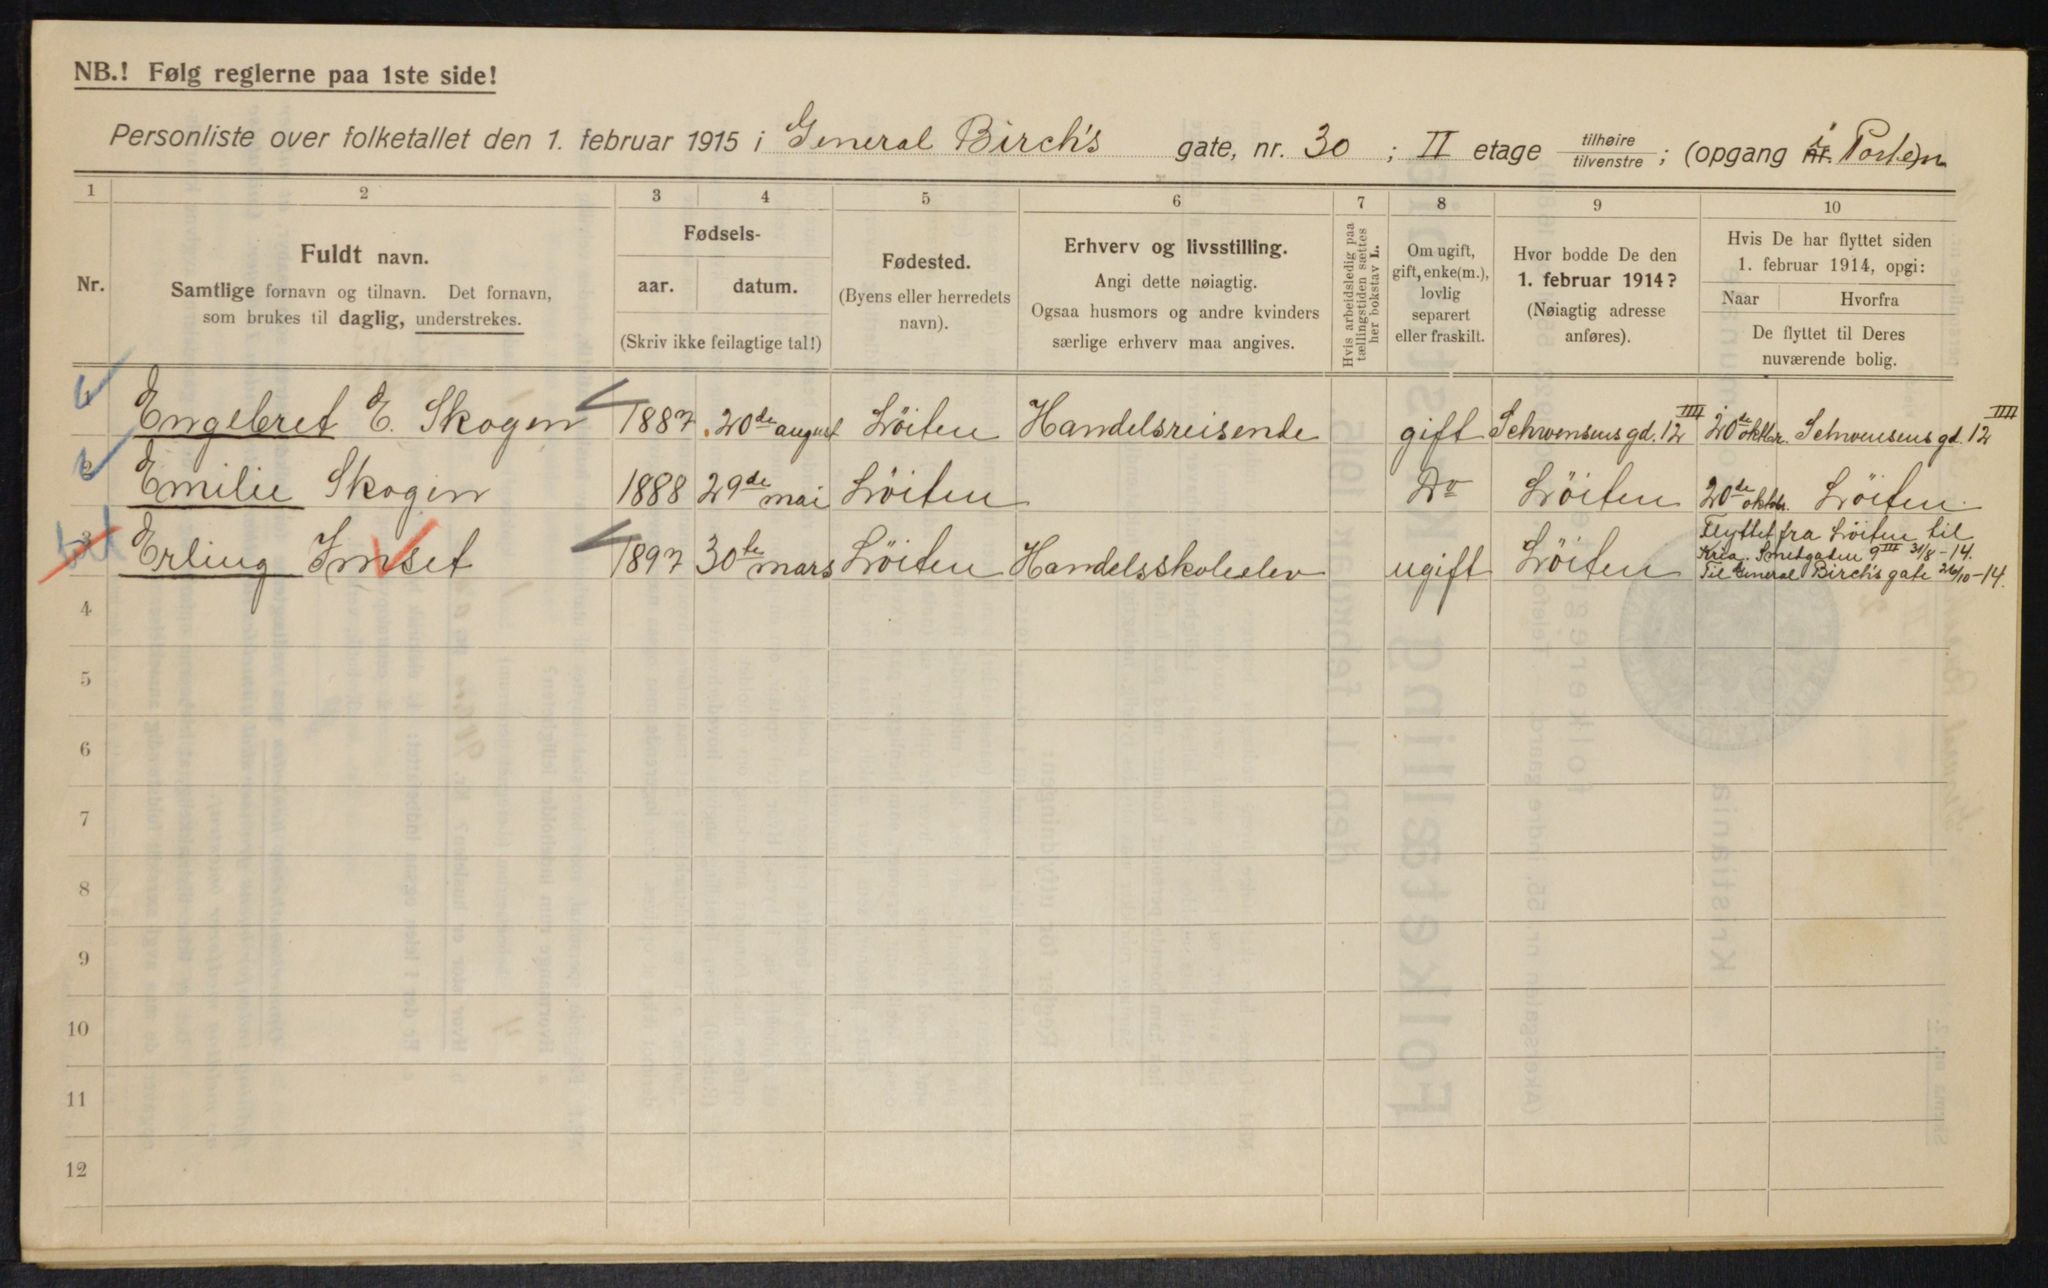 NB.! Følg reglerne paa 1ste side!
Personliste over folketallet den 1. februar 1915 i General Birch's gate, nr. 30 ; II etage tilhøire tilvenstre ; (opgang nr. i Porten)
1 2 3 4 5 6 7 8 9 10
Nr.
Fuldt navn.
Samtlige fornavn og tilnavn. Det fornavn,
som brukes til daglig, understrekes.
Fødsels-
aar. datum.
(Skriv ikke feilagtige tal!)
Fødested.
(Byens eller herredets
navn).
Erhverv og livsstilling.
Angi dette nøiagtig.
Ogsaa husmors og andre kvinders
særlige erhverv maa angives.
Hvis arbeidsledig paa
tællingstiden sættes
her bokstav L.
Om ugift,
gift, enke(m.),
lovlig
separert
eller fraskilt.
Hvor bodde De den
1. februar 1914?
(Nøiagtig adresse
anføres).
Hvis De har flyttet siden
1. februar 1914, opgi:
Naar Hvorfra
De flyttet til Deres
nuværende bolig.
1 Engebret E. Skogen 1887 20de august Löiten Handelsreisende gift Schwensensgd. 12 IIII 20de oktbr. Schwensensgd. 12 IIII
2 Emilie Skogen 1888 29de mai Löiten Do Löiten 20de oktbr. Löiten
3 Erling Imset 1897 30te mars Löiten Handelsskoleelev ugift Löiten Flyttet fra Löiten til
Kria. Smedgaten 9 III 31/8-14.
Til General Birch's gate 26/10-14.
4
5
6
7
8
9
10
11
12